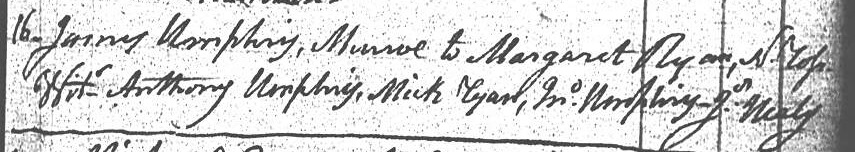 16- James Umphris, Munroe to Margaret Ryan, N.
Wit.s Anthony Umphris, Mick Ryan, Jno. Umphris Js. Nealy